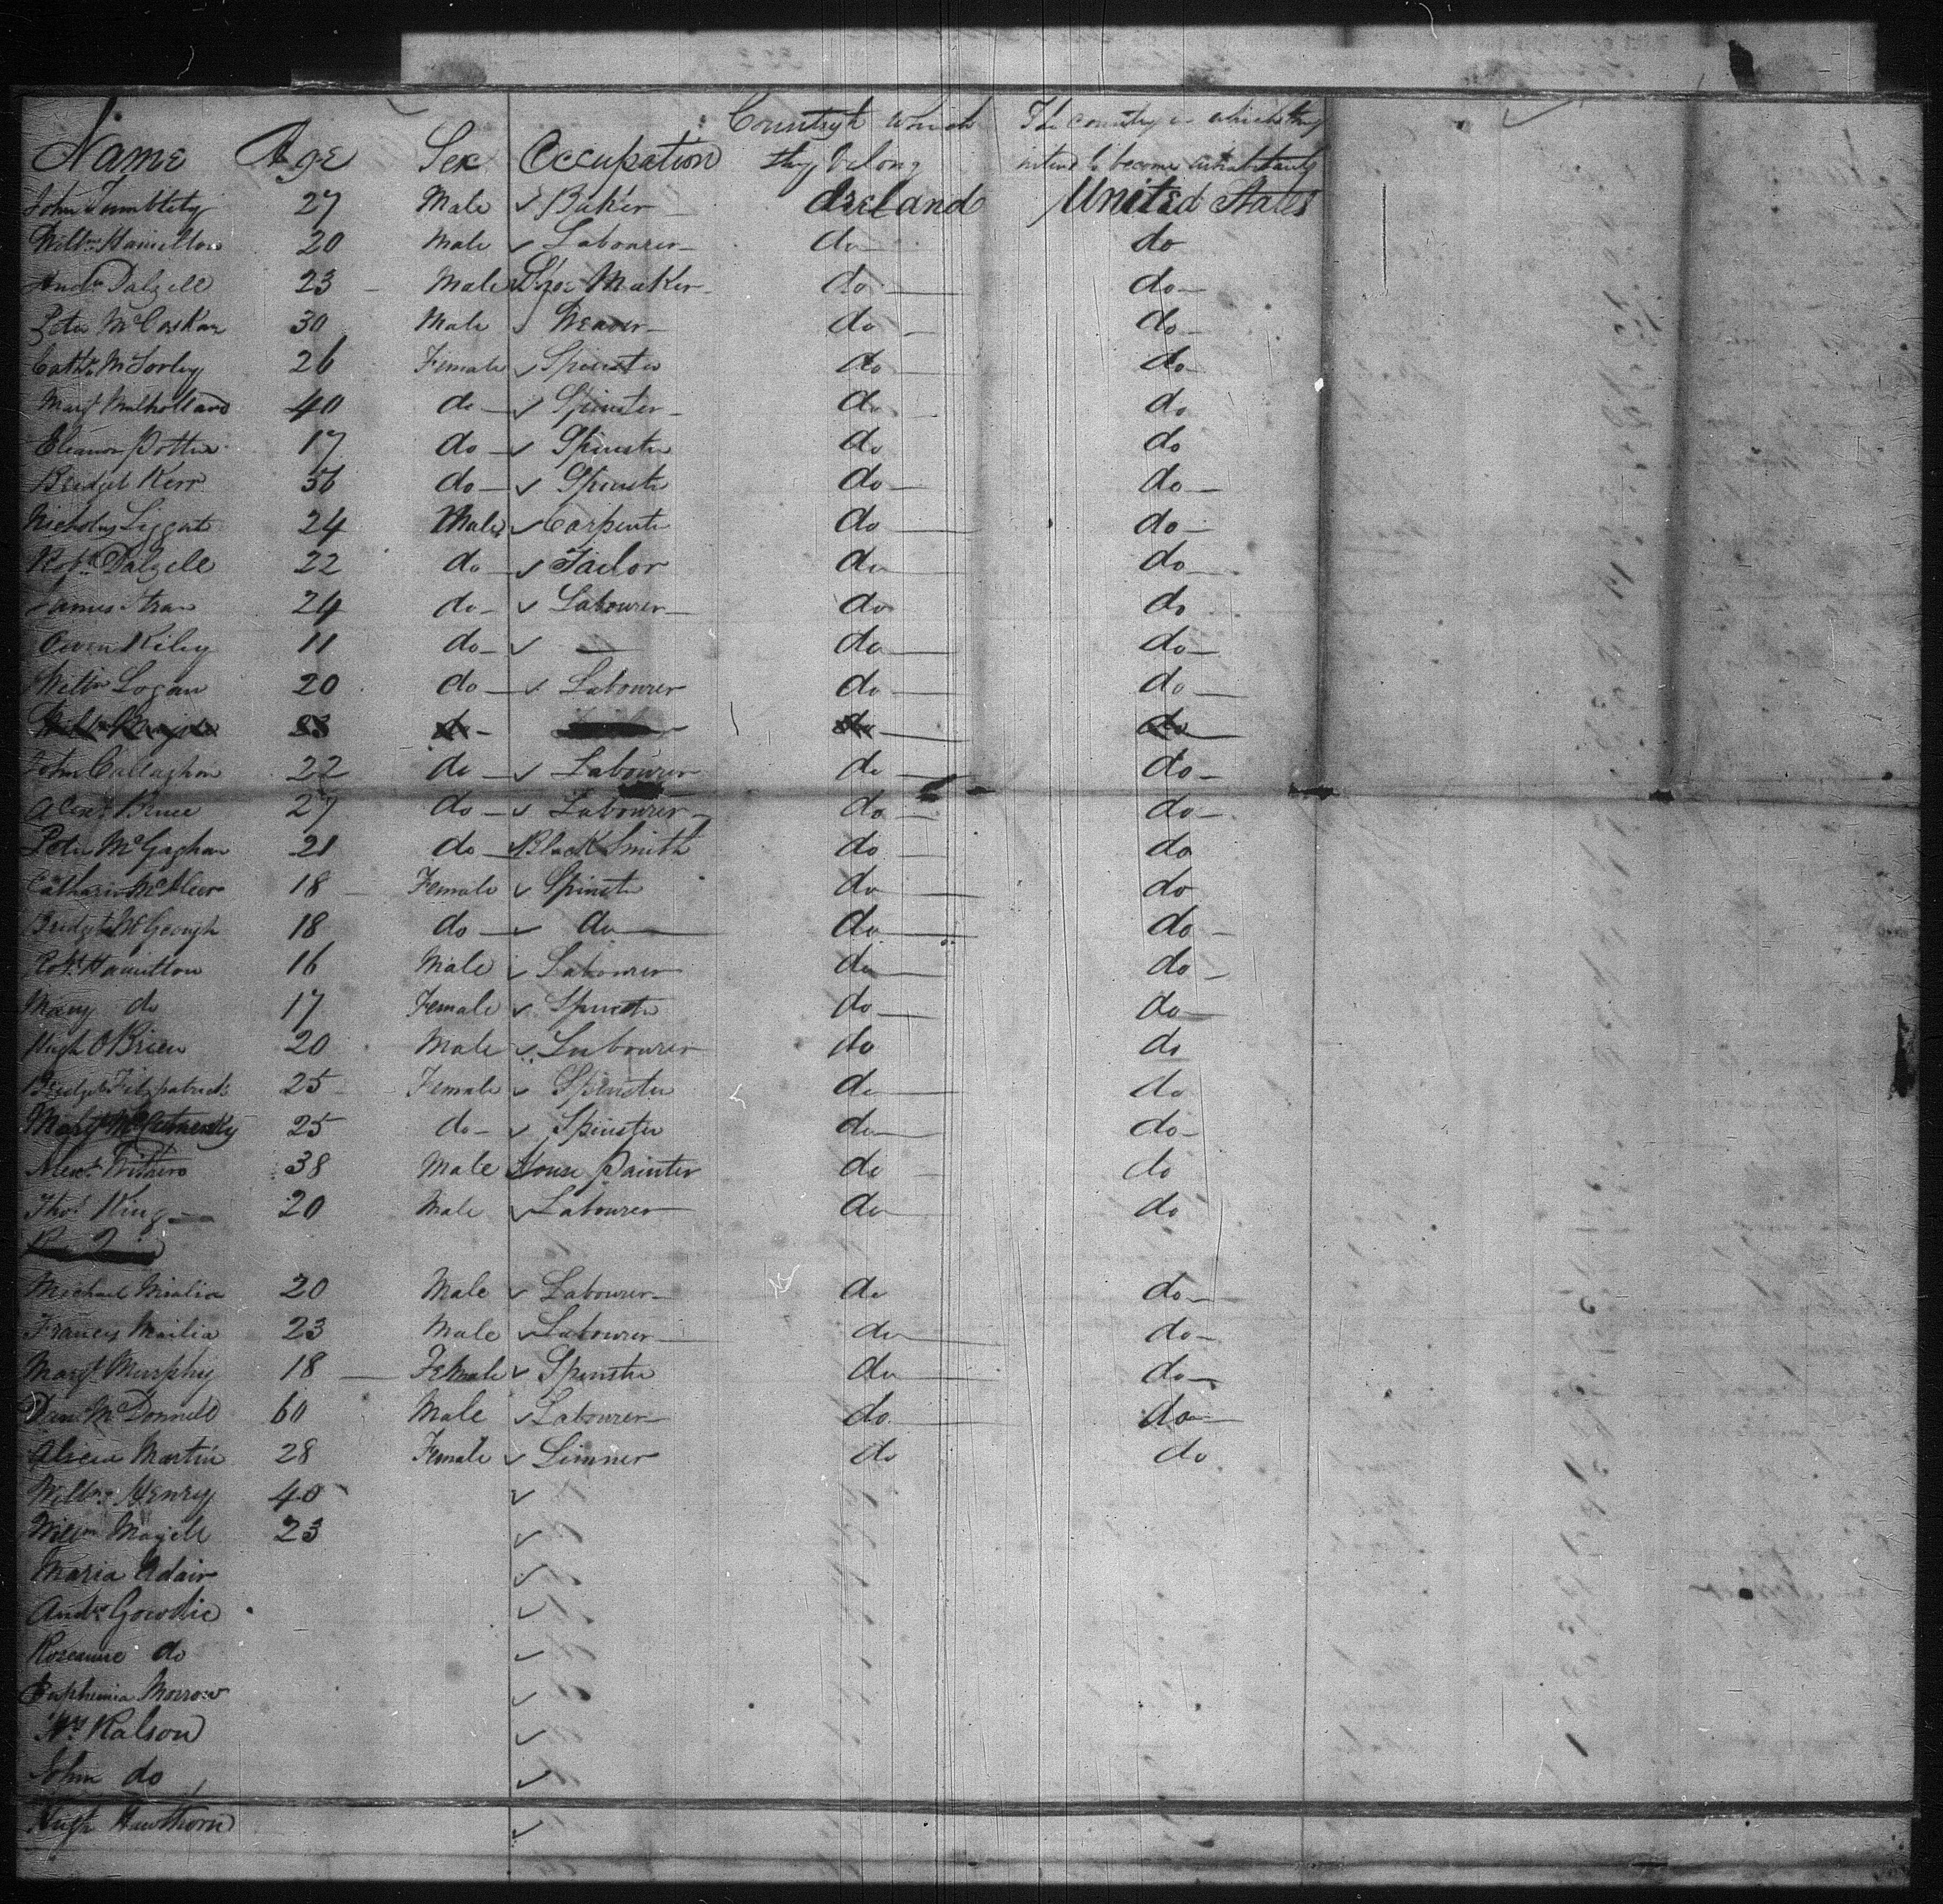 Name Age Sex Occupation Country to which they belong The country in which they intend to become inhabitants
John Tumblety 27 Male Baker Ireland United States
Willm Hamilton 20 Male Labourer do do
Andw Dalzell 23 Male Shoe Maker do do
Peter McCaskar 30 Male Weaver do do
Cathe McSorley 26 Female Spinster do do
Margt Mulholland 40 do Spinster do do
Eleanor Potter 17 do Spinster do do
Bridget Kerr 36 do Spinster do do
Nicholas Liggat 24 Male Carpenter do do
Robt Dalzell 22 do Tailor do do
James Stran 24 do Labourer do do
Owen Kiley 11 do — do do
Willm Logan 20 do Labourer do do
do do do
John Callaghan 22 do Labourer do do
Alexr Bruce 27 do Labourer do do
Peter McGaghan 21 do Black Smith do do
Catharine McAleer 18 Female Spinster do do
Bridget McGeough 18 do do do do
Robt Hamilton 16 Male Labourer do do
Mary do 17 Female Spinster do do
Hugh O'Brien 20 Male Labourer do do
Bridget Fitzpatrick 25 Female Spinster do do
Margt 25 do Spinster do do
Alexr Withero 38 Male House Painter do do
Thos King 20 Male Labourer do do
Michael Mialia 20 Male Labourer do do
Francis Mailia 23 Male Labourer do do
Margt Murphy 18 Female Spinster do do
Dan McDonnell 60 Male Labourer do do
Alicia Martin 28 Female Limner do do
Willm Henry 40
Willm Magill 23
Maria Adair
Andw Gowdie
Roseanne do
Euphemia Morrow
Ralson
John do
Hugh Hawthorn